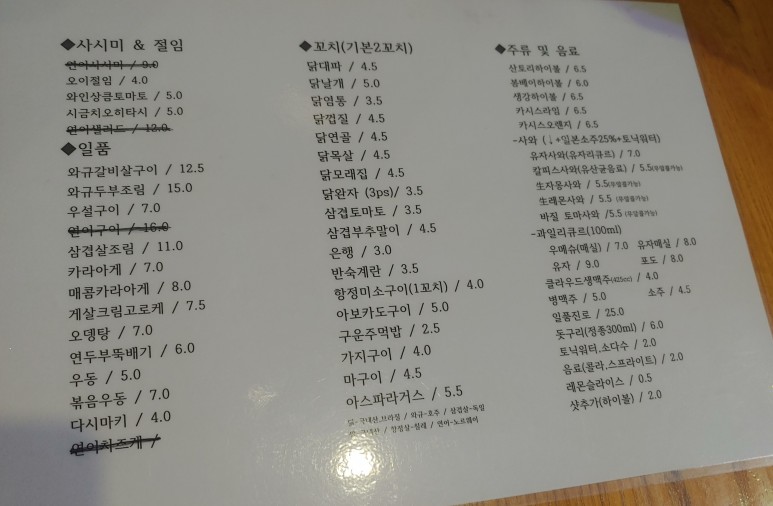 ◆사시미 & 절임
연어사시미 / 9.0
오이절임 / 4.0
와인상큼토마토 / 5.0
시금치오히타시 / 5.0
연어샐러드 / 12.0
◆일품
와규갈비살구이 / 12.5
와규두부조림 / 15.0
우설구이 / 7.0
연어구이 / 16.0
삼겹살조림 / 11.0
카라아게 / 7.0
매콤카라아게 / 8.0
게살크림고로케 / 7.5
오뎅탕 / 7.0
연두부뚝배기 / 6.0
우동 / 5.0
볶음우동 / 7.0
다시마키 / 4.0
연어치즈케 /
◆꼬치(기본2꼬치)
닭대파 / 4.5
닭날개 / 5.0
닭염통 / 3.5
닭껍질 / 4.5
닭연골 / 4.5
닭목살 / 4.5
닭모래집 / 4.5
닭완자 (3ps)/ 3.5
삼겹토마토 / 3.5
삼겹부추말이 / 4.5
은행 / 3.0
반숙계란 / 3.5
항정미소구이(1꼬치) / 4.0
아보카도구이 / 5.0
구운주먹밥 / 2.5
가지구이 / 4.0
마구이 / 4.5
아스파라거스 / 5.5
닭-국내산,브라질 / 와규-호주 / 삼겹살-독일
국내산 / 항정살-칠레 / 연어-노르웨이
◆주류 및 음료
산토리하이볼 / 6.5
봄베이하이볼 / 6.0
생강하이볼 / 6.5
카시스라임 / 6.5
카시스오렌지 / 6.5
-사와 (↓*일본소주25%+토닉워터)
유자사와(유자리큐르) / 7.0
칼피스사와(유산균음료) / 5.5(무알콜가능)
生자몽사와 / 5.5(무알콜가능)
生레몬사와 / 5.5 (무알콜가능)
바질 토마사와 /5.5 (무알콜가능)
-과일리큐르(100ml)
우메슈(매실) / 7.0 유자매실 / 8.0
유자 / 9.0 포도 / 8.0
클라우드생맥주(425cc) / 4.0
병맥주 / 5.0 소주 / 4.5
일품진로 / 25.0
돗구리(정종300ml) / 6.0
토닉워터,소다수 / 2.0
음료(콜라,스프라이트) / 2.0
레몬슬라이스 / 0.5
샷추가(하이볼) / 2.0